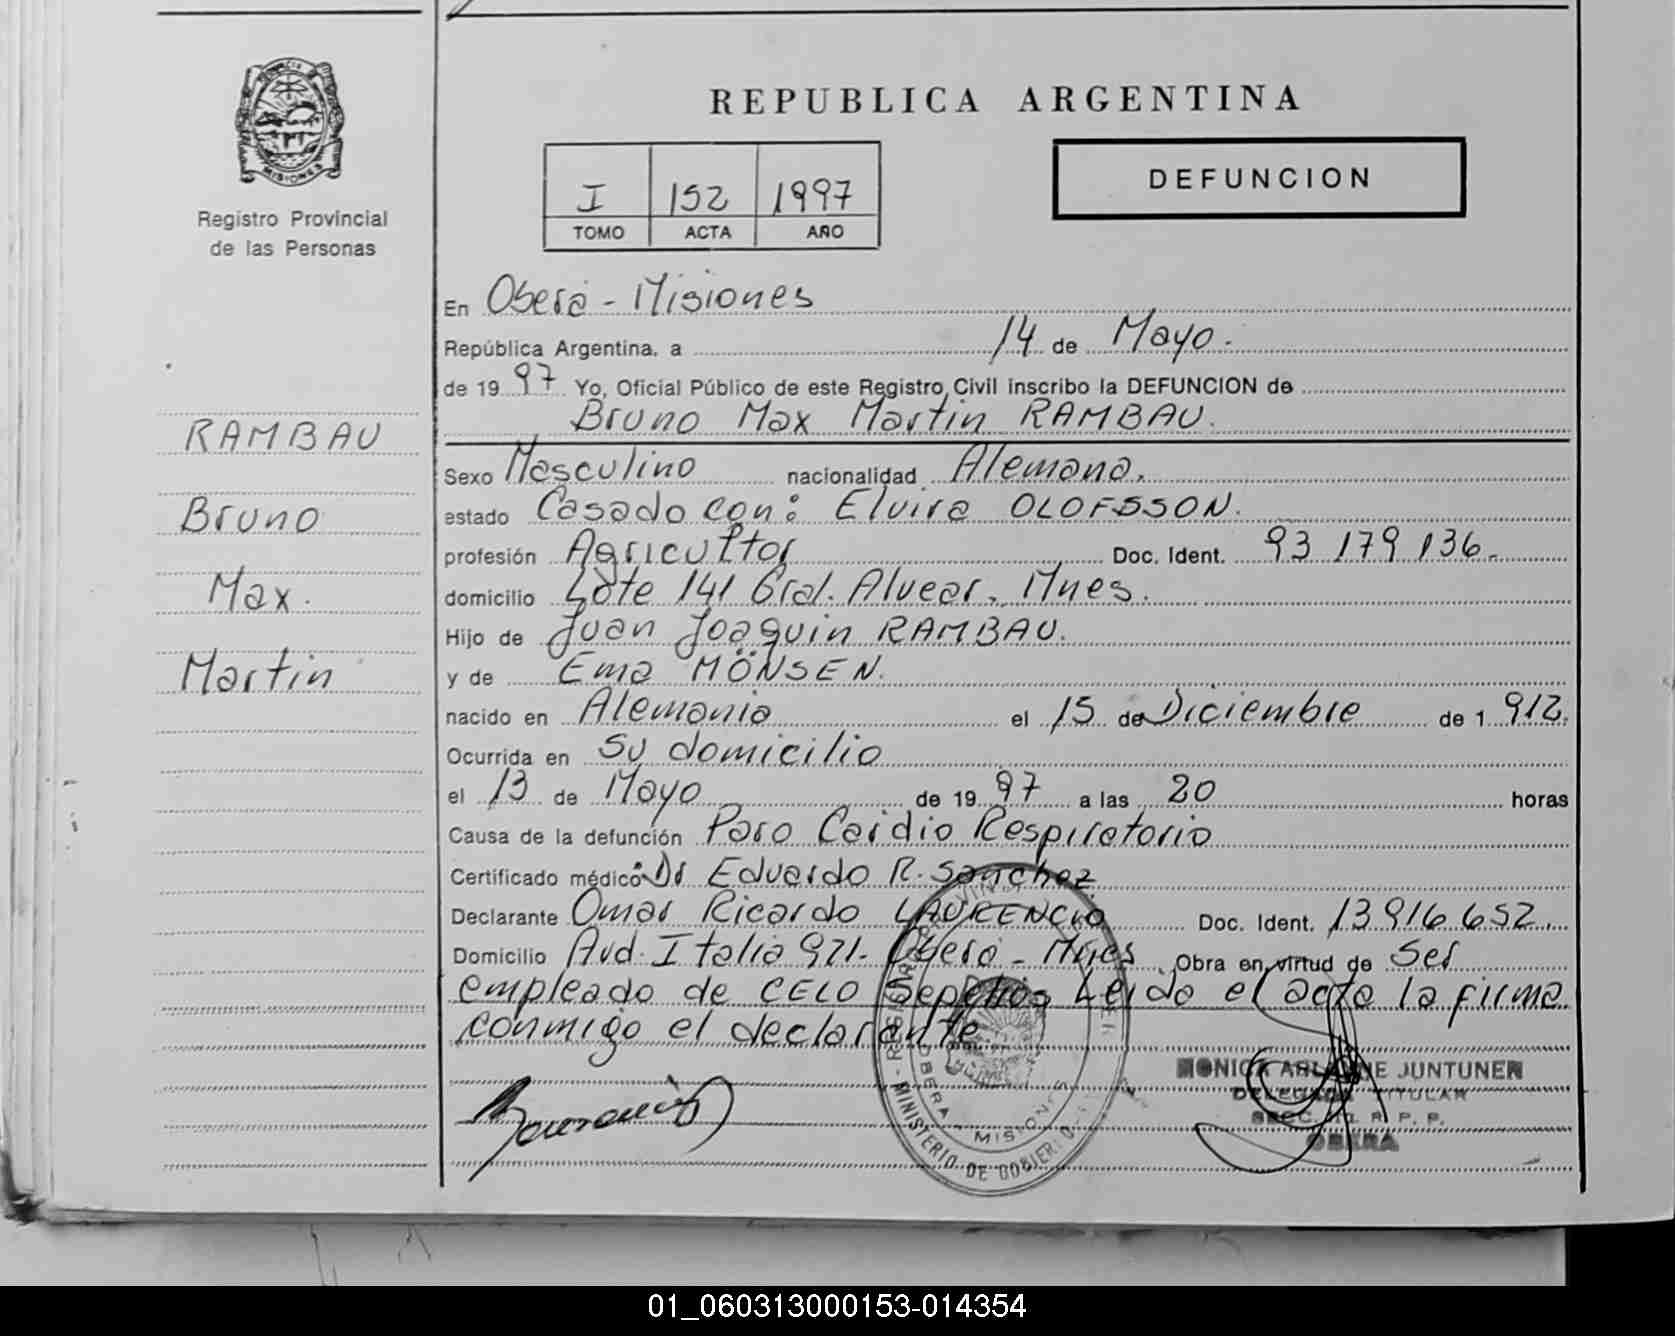 PROVINCIA DE
MISIONES
Registro Provincial
de las Personas
RAMBAU
Bruno
Max.
Martin
REPUBLICA ARGENTINA
I 152 1997
TOMO ACTA AÑO
DEFUNCION
En Oberá - Misiones
República Argentina, a 14 de Mayo.
de 19 97 Yo, Oficial Público de este Registro Civil inscribo la DEFUNCION de
Bruno Max Martin RAMBAU.
Sexo Masculino nacionalidad Alemana.
estado Casado con: Elvira OLOFSSON.
profesión Agricultor Doc. Ident. 93 179 136.
domicilio Lote 141 Gral. Alvear. Mnes.
Hijo de Juan Joaquin RAMBAU.
y de Ema MÖNSEN.
nacido en Alemania el 15 de Diciembre de 1 912.
Ocurrida en Su domicilio
el 13 de Mayo de 19 97 a las 20 horas
Causa de la defunción Paro Cardio Respiratorio
Certificado médico: Dr Eduardo R. Sanchez
Declarante Omar Ricardo LAURENCIO Doc. Ident. 13 916 652.
Domicilio Avd. Italia 921. Oberá - Mnes Obra en virtud de Ser
empleado de CELO Sepelios Leida el acta la firma
conmigo el declarante
MONICA ARLENNE JUNTUNEN
DELEGADA TITULAR
SECC. R. P. P.
OBERA
OBERA - MISIONES
MINISTERIO DE GOBIERNO
01_060313000153-014354